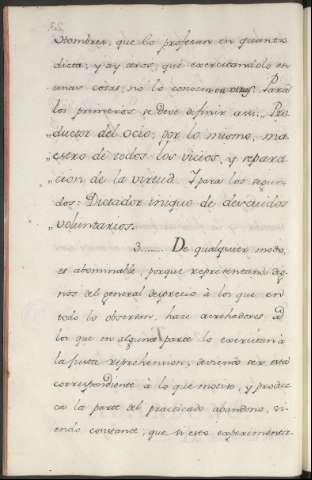 Hombres, que lo profesan en quanto
dicta, y ay otros, que exercitandolo en
unas cosas, no lo conocen en otras. Para
los primeros se deve definir assi: Pro-
"ductor del ocio, por lo mismo, ma-
"estro de todos los vicios, y separa-
"cion de la virtud. Y para los segun-
dos: Dictador iniquo de descuidos
voluntarios.
3...... De qualquier modo,
es abominable, porque representará dig-
nos del general desprecio à los que en
todo lo observen, hace acrehedores à
los que en alguna parte lo exercitan à
la justa reprehension, deviendo ser esta
correspondiente à lo que motive, y produz-
ca la parte del practicado abandono, si-
endo constante, que si esto experimenta-